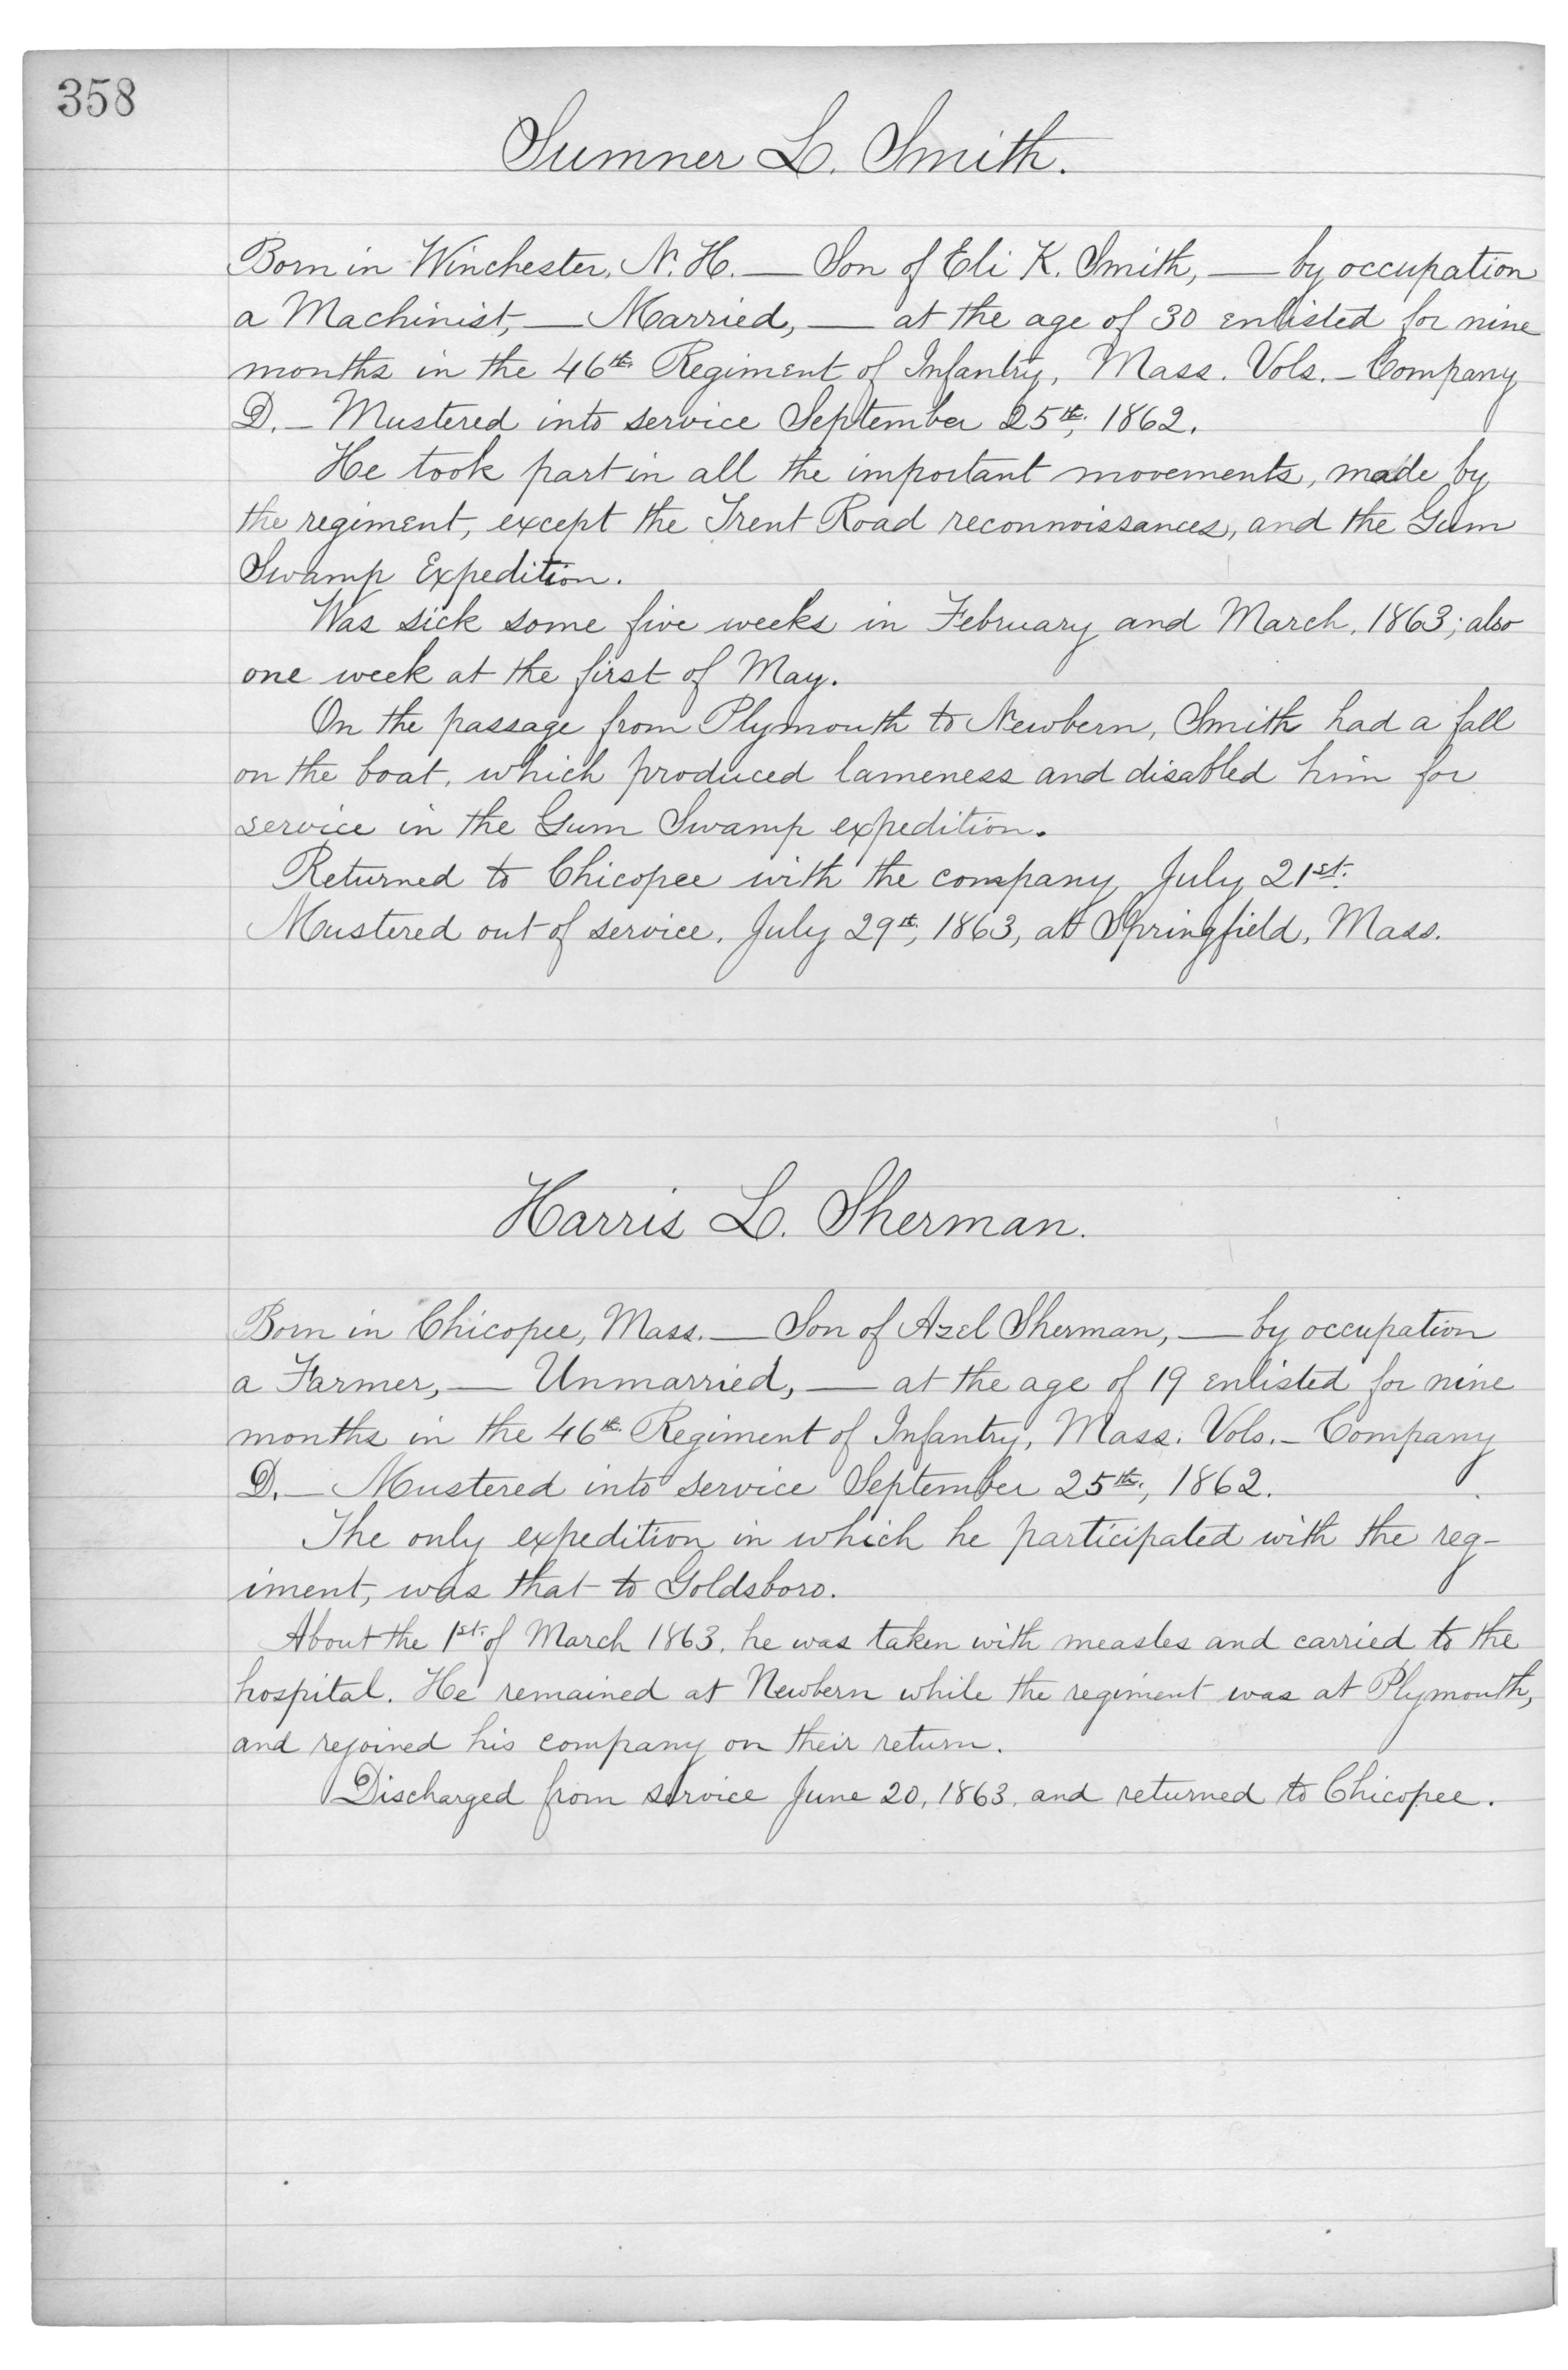 358
Sumner L. Smith.
Born in Winchester, N. H. — Son of Eli K. Smith, — by occupation
a Machinist, — Married, — at the age of 30 enlisted for nine
months in the 46th. Regiment of Infantry, Mass. Vols. – Company
D. – Mustered into service September 25th., 1862.
He took part in all the important movements, made by
the regiment, except the Trent Road reconnoissances, and the Gum
Swamp Expedition.
Was sick some five weeks in February and March, 1863; also
one week at the first of May.
On the passage from Plymouth to Newbern, Smith had a fall
on the boat, which produced lameness and disabled him for
service in the Gum Swamp expedition.
Returned to Chicopee with the company July 21st.
Mustered out of service, July 29th., 1863, at Springfield, Mass.
Harris L. Sherman.
Born in Chicopee, Mass. — Son of Azel Sherman, — by occupation
a Farmer, — Unmarried, — at the age of 19 enlisted for nine
months in the 46th. Regiment of Infantry, Mass. Vols. – Company
D. – Mustered into service September 25th., 1862.
The only expedition in which he participated with the reg-
iment, was that to Goldsboro.
About the 1st. of March 1863, he was taken with measles and carried to the
hospital. He remained at Newbern while the regiment was at Plymouth,
and rejoined his company on their return.
Discharged from service June 20, 1863, and returned to Chicopee.